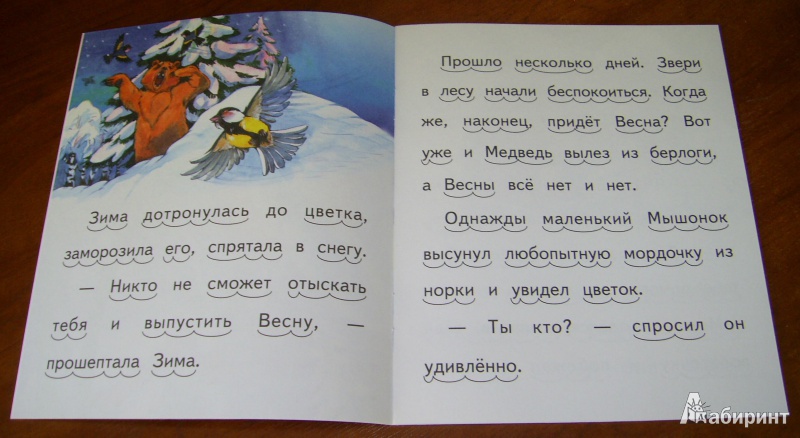 Зима дотронулась до цветка,
заморозила его, спрятала в снегу.
— Никто не сможет отыскать
тебя и выпустить Весну, —
прошептала Зима.
Прошло несколько дней. Звери
в лесу начали беспокоиться. Когда
же, наконец, придёт Весна? Вот
уже и Медведь вылез из берлоги,
а Весны всё нет и нет.
Однажды маленький Мышонок
высунул любопытную мордочку из
норки и увидел цветок.
— Ты кто? — спросил он
удивлённо.
Лабиринт